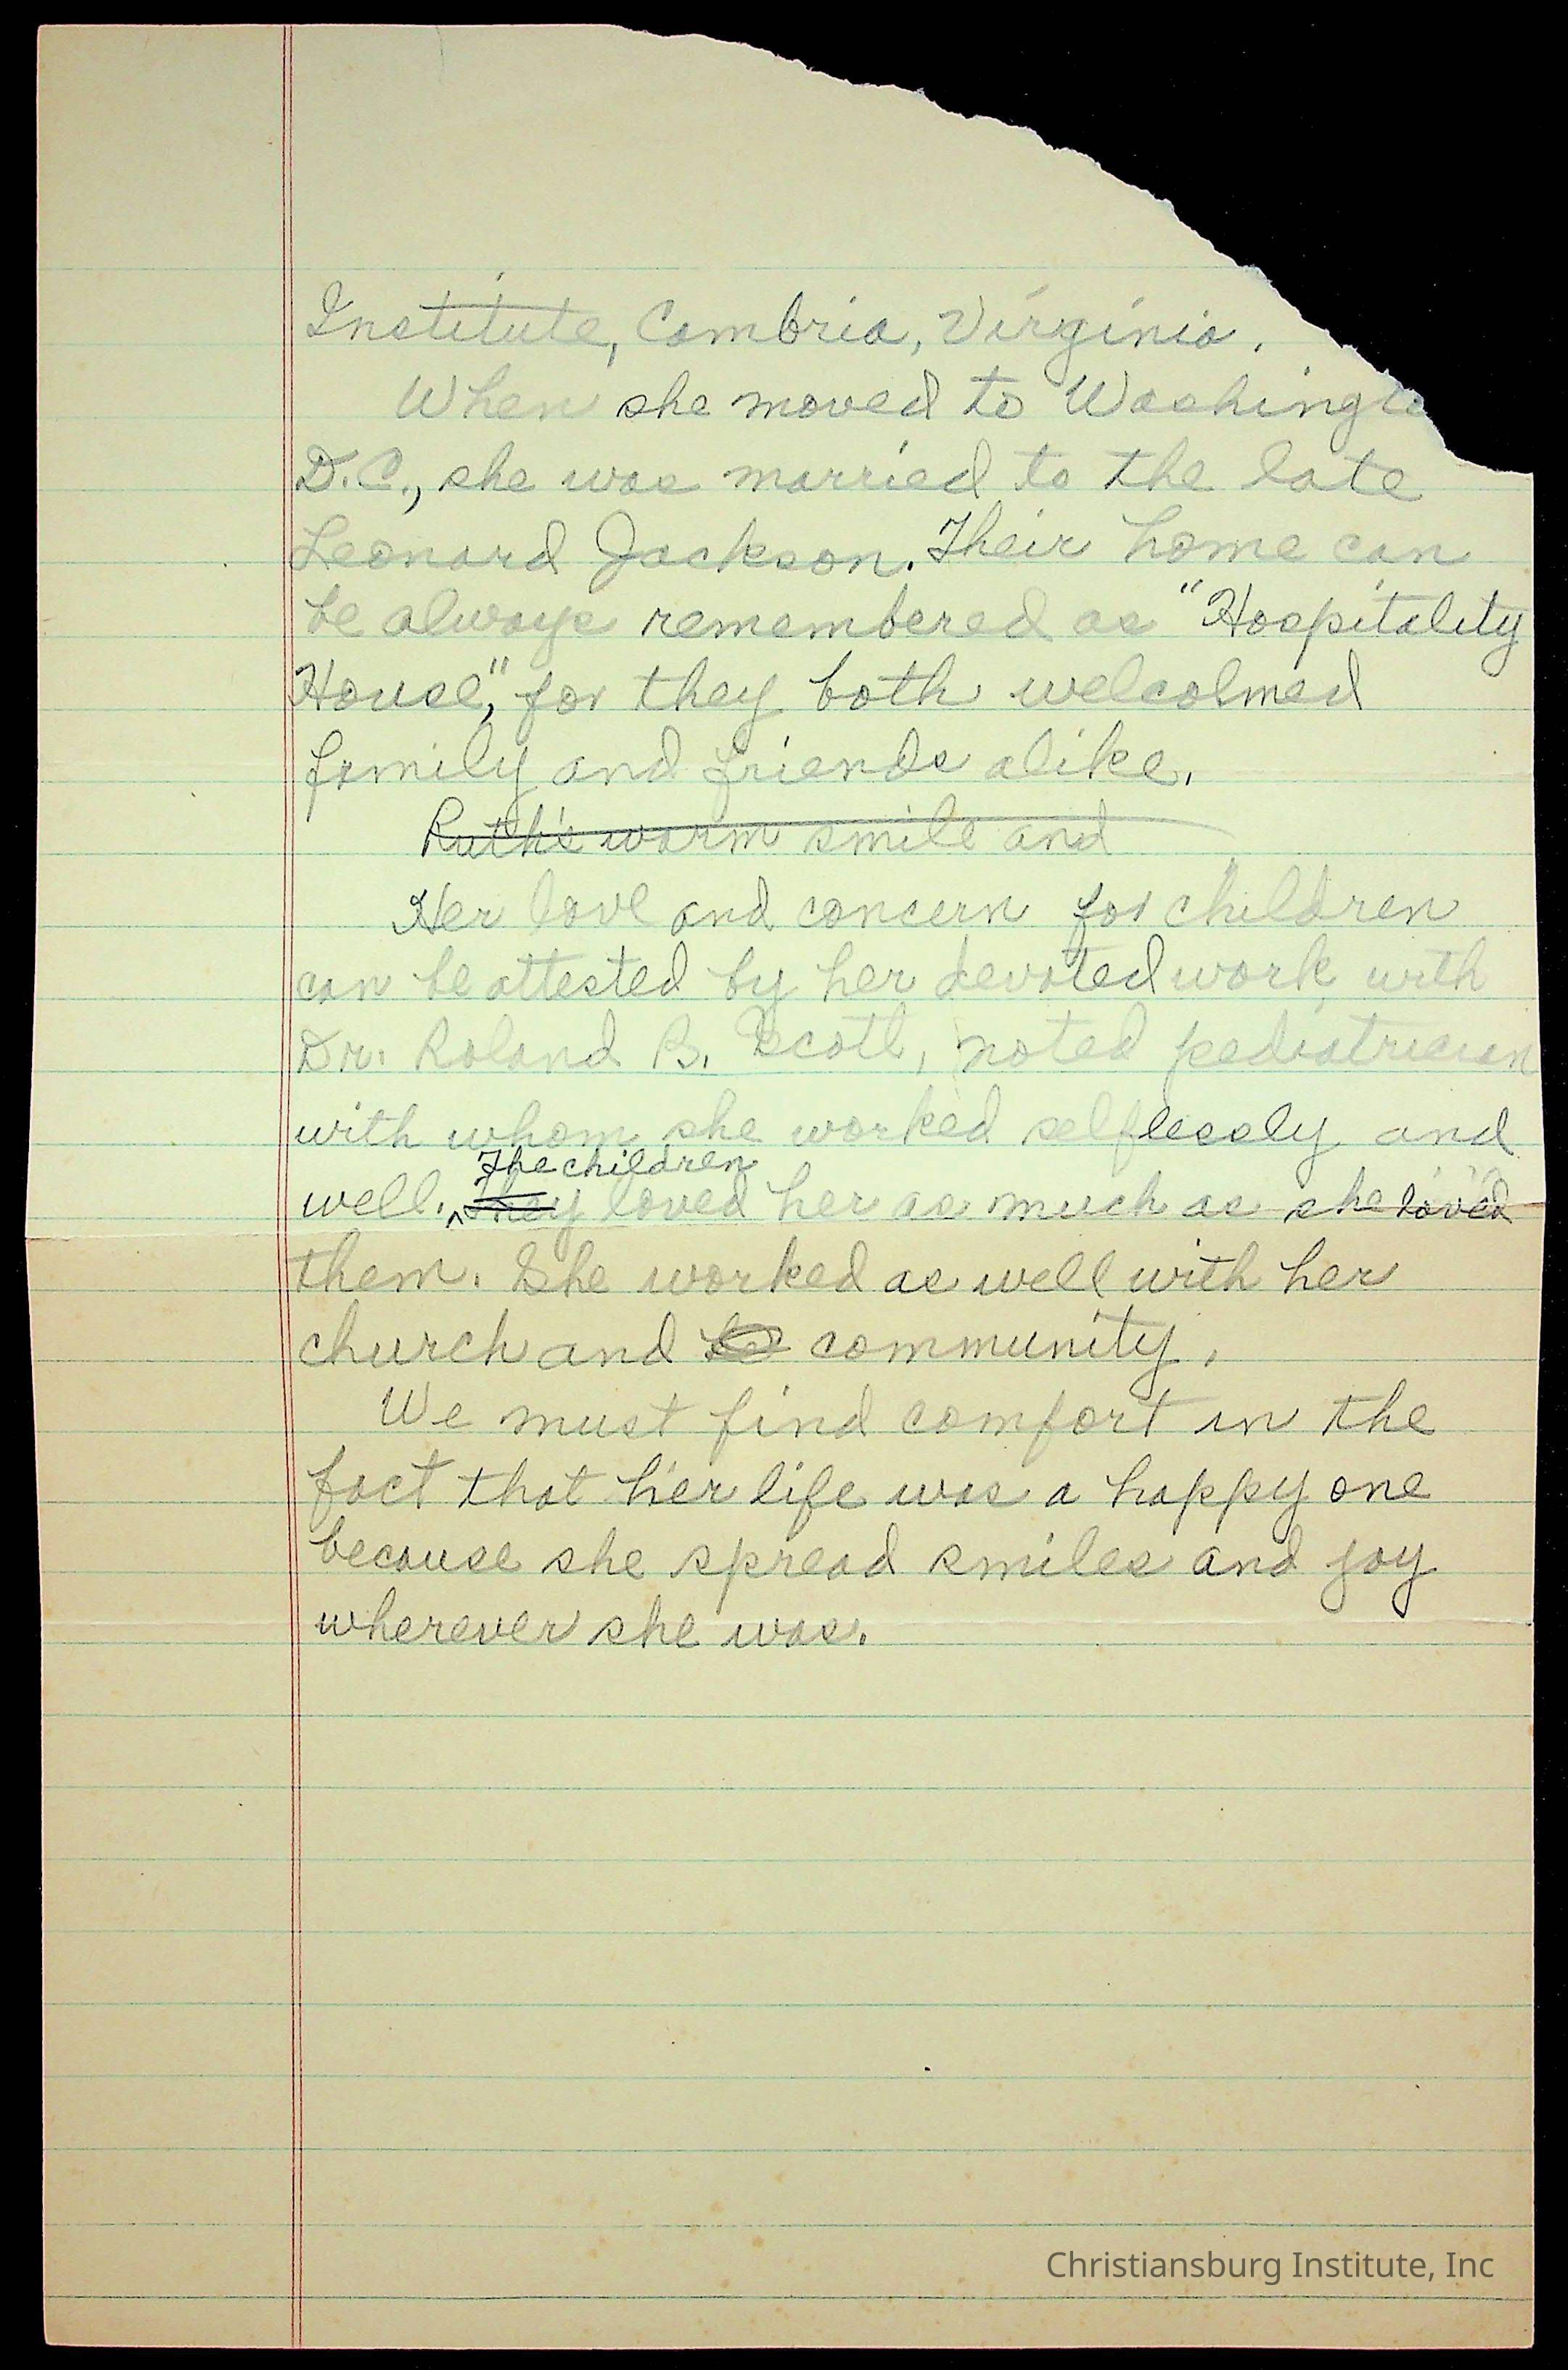 Institute, Cambria, Virginia.
When she moved to Washingto
D.C., she was married to the late
Leonard Jackson. Their home can
be always remembered as "Hospitality
House," for they both welcolmed
family and friends alike.
Ruth's warm smile and
Her love and concern for children
can be attested by her devoted work with
Dr. Roland B. Scott, noted pediatrician
with whom she worked selflessly and
The children
well. They loved her as much as she loved
them. She worked as well with her
church and community.
We must find comfort in the
fact that her life was a happy one
because she spread smiles and joy
wherever she was.
Christiansburg Institute, Inc